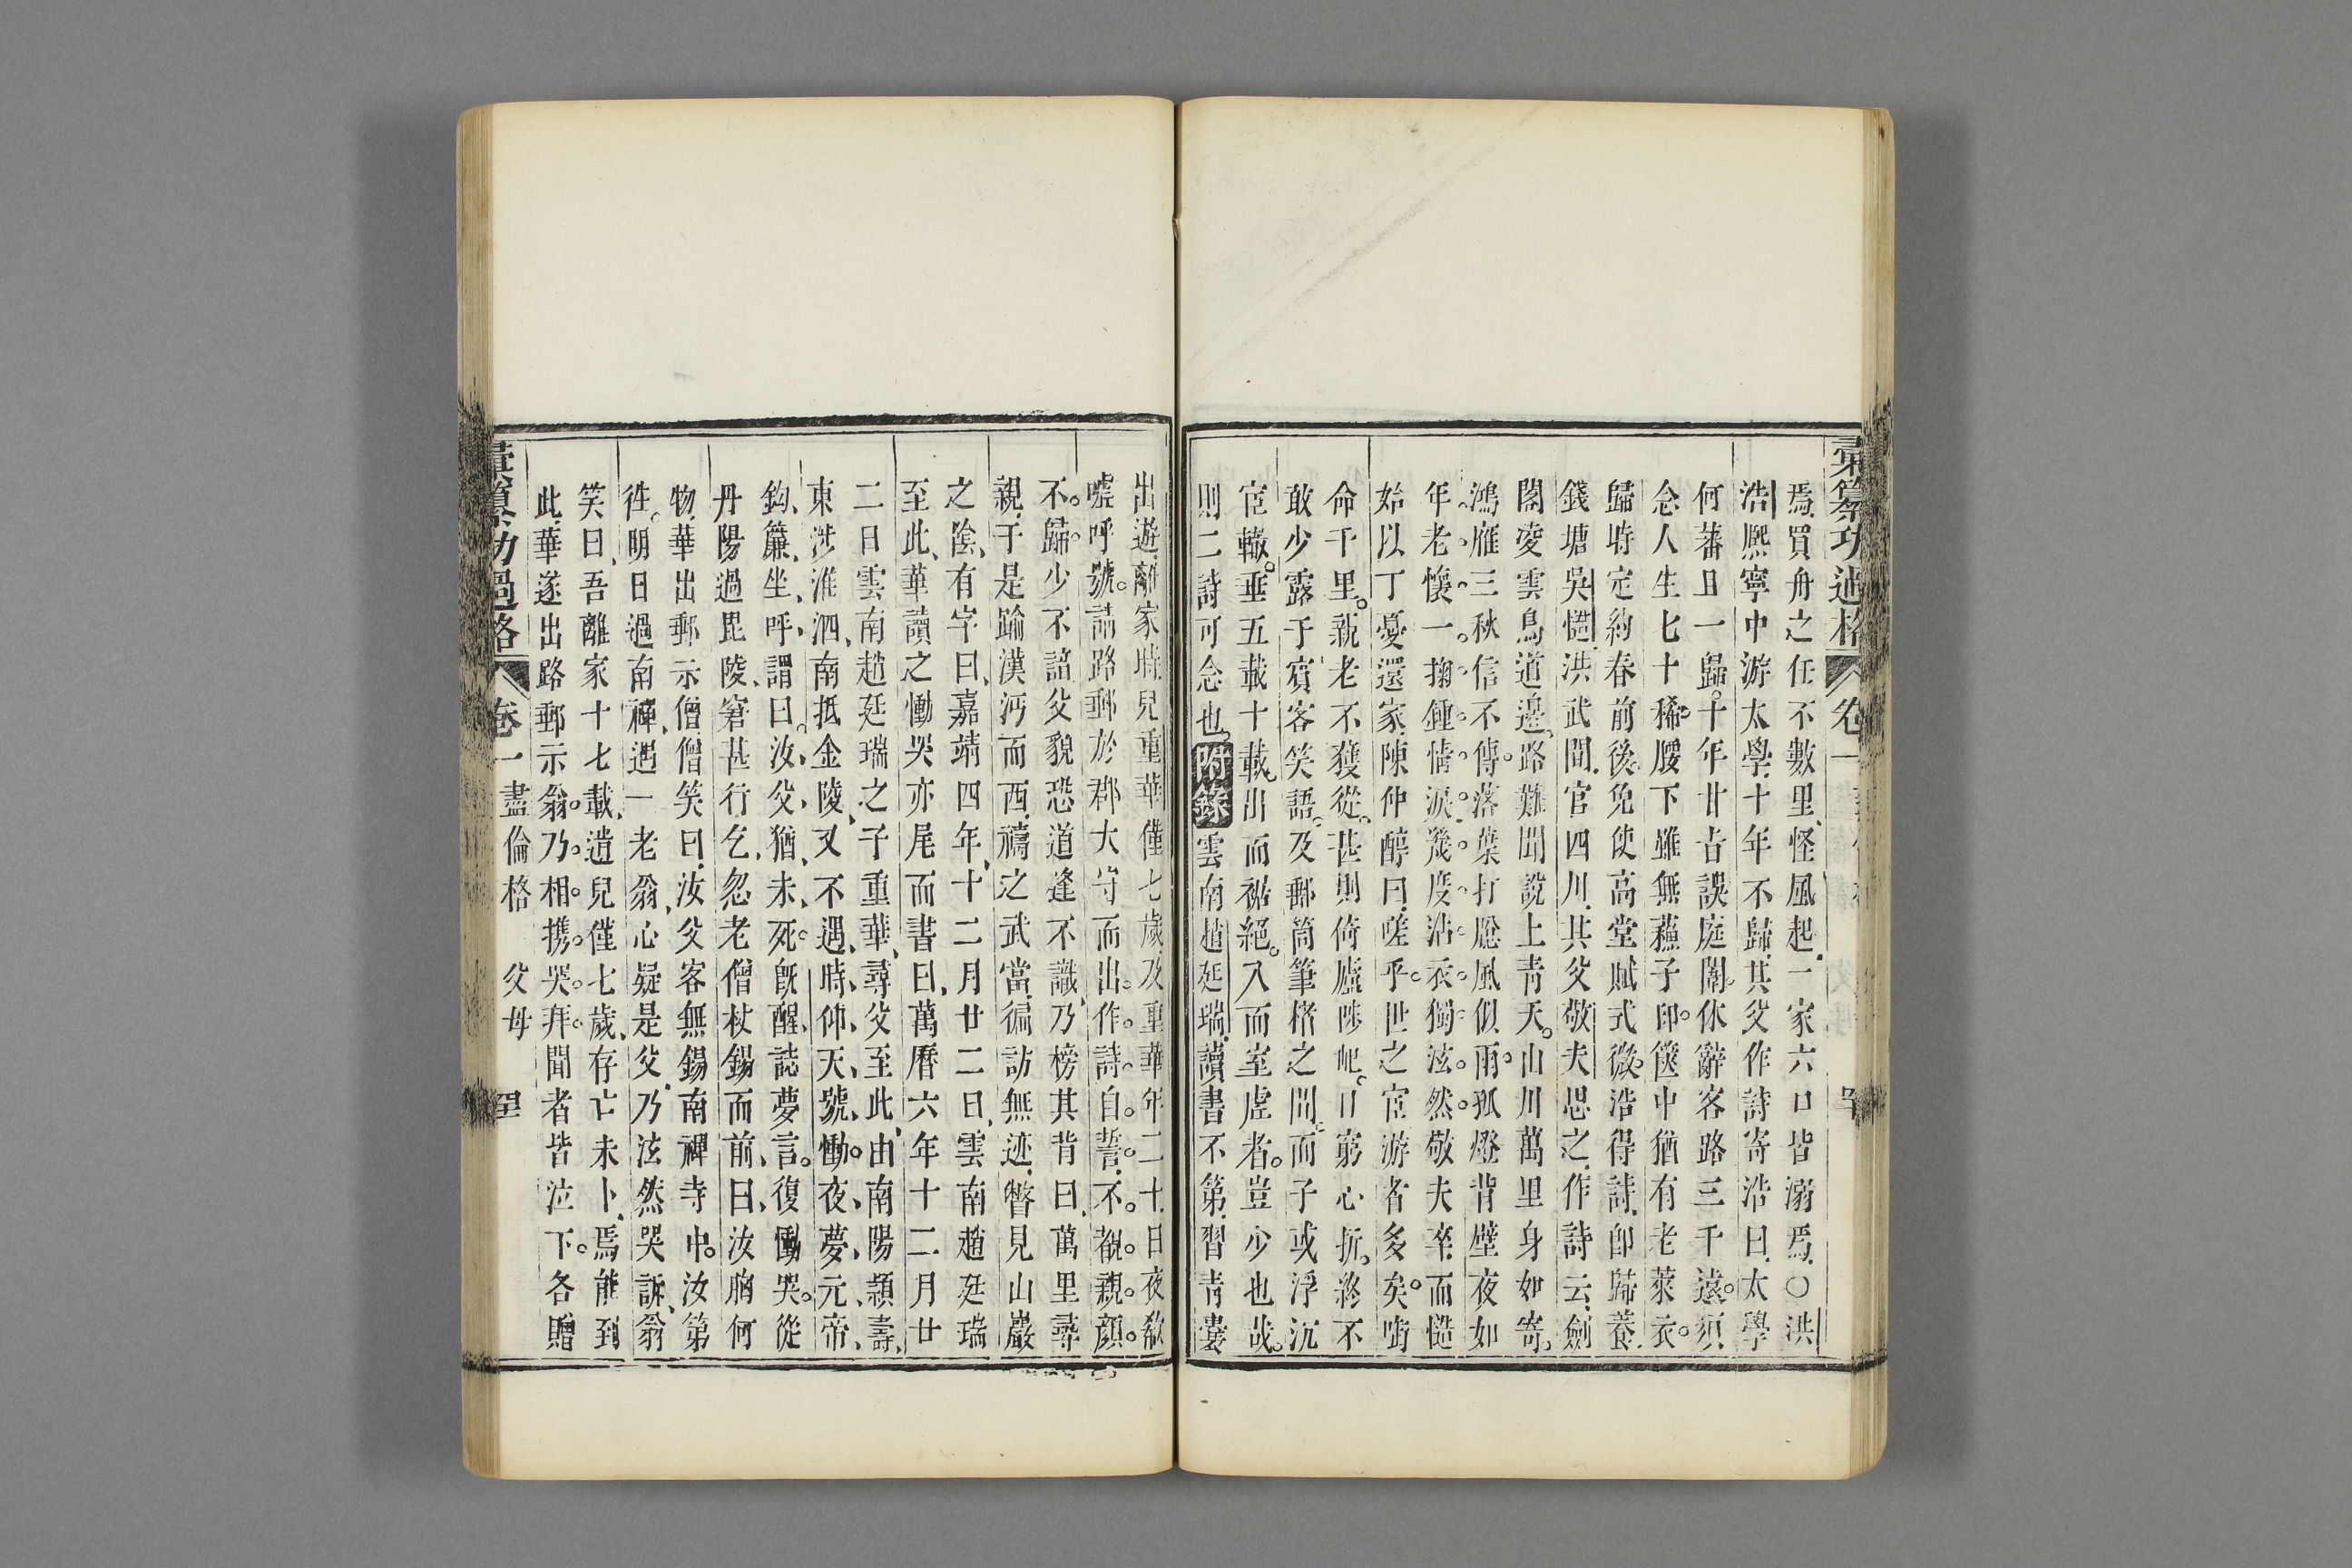 彙纂功過格 卷一
焉買舟之任不數里怪風起一家六口皆溺焉○洪
浩熙寧中游太學十年不歸其父作詩寄浩曰太學
何蕃且一歸十年甘旨誤庭闈休辭客路三千遠須
念人生七十稀腰下雖無蘓子印篋中猶有老萊衣
歸時定約春前後免使高堂賦式微浩得詩卽歸養
錢塘吳慥洪武間官四川其父敬夫思之作詩云劍
閣凌雲鳥道邊路難聞說上青天山川萬里身如寄
鴻雁三秋信不傳落葉打牕風似雨孤燈背壁夜如
年老懷一掬鍾情淚幾度沾衣獨泫然敬夫卒而慥
始以丁憂還家陳仲醇曰嗟乎世之宦游者多矣啣
命千里親老不獲從甚則倚廬陟屺目窮心折終不
敢少露于賓客笑語及郵筒筆楮之間而子或浮沉
宦轍垂五載十載出而裾絕入而室虛者豈少也哉
則二詩可念也附錄雲南趙廷瑞讀書不第習青囊
出遊離家時兒重華僅七歲及重華年二十日夜欷
噓呼號請路郵於郡大守而出作詩自誓不覩親顏
不歸少不諳父貌恐道逢不識乃榜其背曰萬里尋
親于是踰漢沔而西禱之武當徧訪無迹瞥見山巖
之陰有字曰嘉靖四年十二月廿二日雲南趙廷瑞
至此華讀之慟哭亦尾而書曰萬曆六年十二月廿
二日雲南趙廷瑞之子重華尋父至此由南陽潁壽
東涉淮泗南抵金陵又不遇時仰天號慟夜夢元帝
鈎簾坐呼謂曰汝父猶未死旣醒誌夢言復慟哭從
丹陽過毘陵窘甚行乞忽老僧杖錫而前曰汝胸何
物華出郵示僧僧笑曰汝父客無錫南禪寺中汝第
徃明日過南禪遇一老翁心疑是父乃泫然哭訴翁
笑曰吾離家十七載遺兒僅七歲存亡未卜焉能到
此華遂出路郵示翁乃相携哭拜聞者皆泣下各贈
彙纂功過格 卷一盡倫格 父母